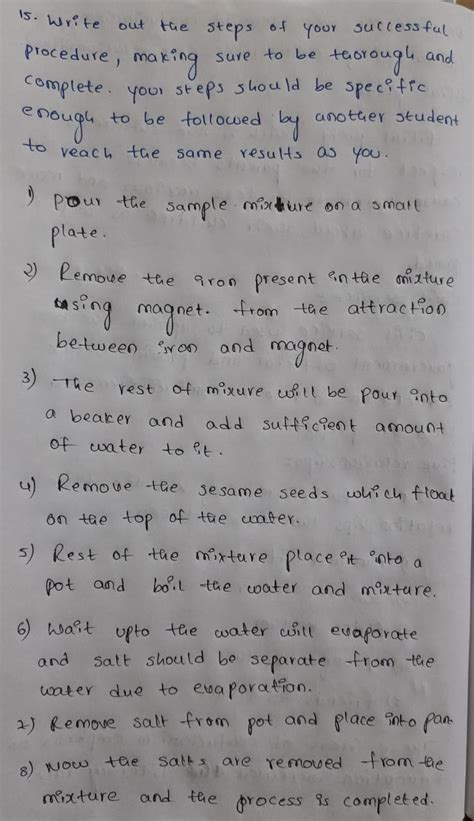 15. Write out the steps of your successful
procedure, making sure to be thorough and
complete. your steps should be specific
enough to be followed by another student
to reach the same results as you.
1) pour the sample mixture on a small
plate.
2) Remove the iron present in the mixture
using magnet. from the attraction
between iron and magnet.
3) The rest of mixure will be pour into
a beaker and add sufficient amount
of water to it.
4) Remove the sesame seeds which float
on the top of the water.
5) Rest of the mixture place it into a
pot and boil the water and mixture.
6) Wait upto the water will evaporate
and salt should be separate from the
water due to evaporation.
7) Remove salt from pot and place into pan.
8) Now the salts are removed from the
mixture and the process is completed.